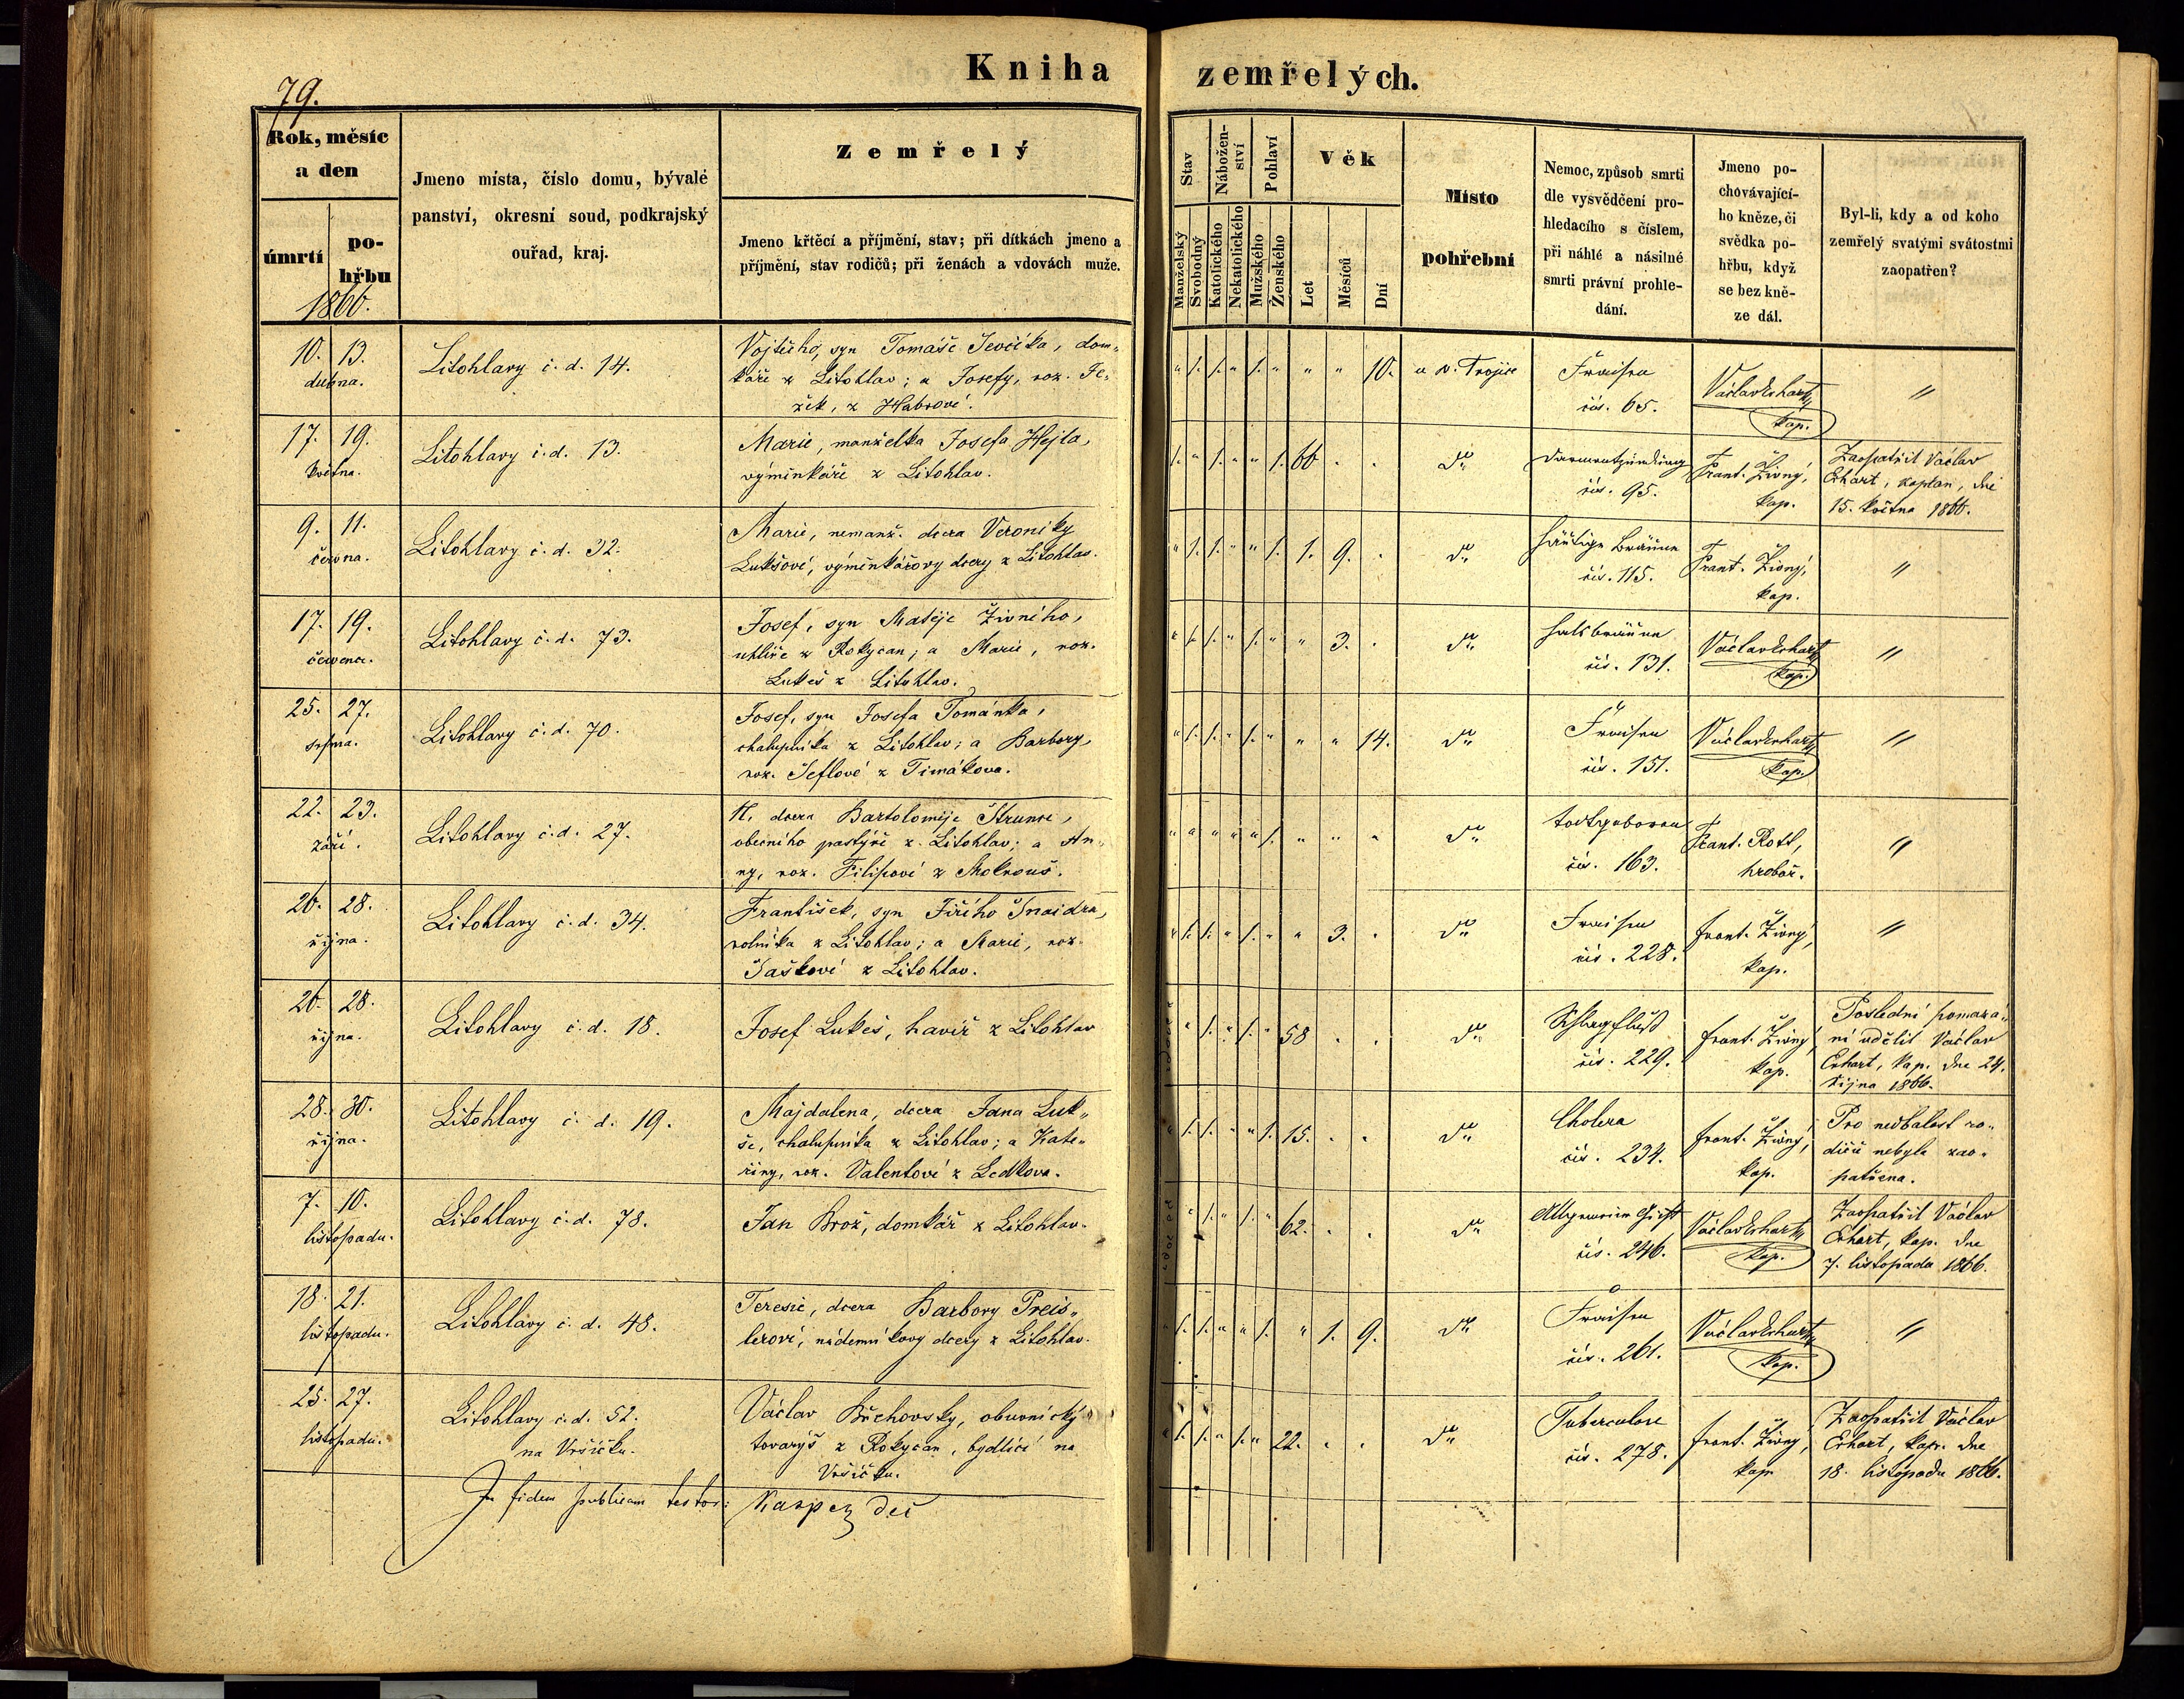 79.
Kniha zemřelých.
Rok, měsíc
a den
úmrtí
po-
hřbu
1866.
Jmeno místa, číslo domu, bývalé
panství, okresní soud, podkrajský
ouřad, kraj.
Zemřelý
Jmeno křtěcí a příjmění, stav; při dítkách jmeno a
příjmění, stav rodičů; při ženách a vdovách muže.
Stav
Manželský
Svobodný
Nábožen-
ství
Katolického
Nekatolického
Pohlaví
Mužského
Ženského
Věk
Let
Měsíců
Dní
Místo
pohřební
Nemoc, způsob smrti
dle vysvědčení pro-
hledacího s číslem,
při náhlé a násilné
smrti právní prohle-
dání.
Jmeno po-
chovávající-
ho kněze, či
svědka po-
hřbu, když
se bez kně-
ze dál.
Byl-li, kdy a od koho
zemřelý svatými svátostmi
zaopatřen?
10. 13.
dubna.
Litohlavy č. d. 14.
Vojtěcho, syn Tomáše Ševčíka, dom„
káře z Litohlav; a Josefy, roz. Je„
žek, z Habrové.
" 1. 1. " 1. " " " 10.
u sv. Trojice
Fraisen
čís. 65.
Václav Erhart,
kap.
"
17. 19.
května.
Litohlavy č. d. 13.
Marie, manželka Josefa Hejla,
výminkáře z Litohlav.
1. " 1. " " 1. 66 . .
dto
Darmentzündung
čís. 95.
Frant. Živný,
kap.
Zaopatřil Václav
Erhart, kaplan, dne
15. května 1866.
9. 11.
června.
Litohlavy č. d. 32.
Marie, nemanž. dcera Veroniky
Lukšové, výminkářovy dcery z Litohlav.
" 1. 1. " " 1. 1. 9. .
dto
häutige Bräune
čís. 115.
Frant. Živný,
kap.
"
17. 19.
července.
Litohlavy č. d. 73.
Josef, syn Matěje Živného,
uhlíře z Rokycan; a Marie, roz.
Lukeš z Litohlav.
" 1. 1. " 1. " " 3. .
dto
Halsbräune
čís. 131.
Václav Erhart,
kap.
"
25. 27.
srpna.
Litohlavy č. d. 70.
Josef, syn Josefa Tománka,
chalupníka z Litohlav; a Barbory,
roz. Šeflové z Timákova.
" 1. 1. " 1. " " " 14.
dto
Fraisen
čís. 151.
Václav Erhart,
kap.
"
22. 23.
září.
Litohlavy č. d. 27.
N. dcera Bartoloměje Štrunce,
obecního pastýře z Litohlav; a An„
ny, roz. Filipové z Mokrouš.
" " " " " 1. " " "
dto
todtgeboren
čís. 163.
Frant. Rott,
hrobař.
"
26. 28.
října.
Litohlavy č. d. 34.
František, syn Jiřího Šnaidra,
rolníka z Litohlav; a Marie, roz.
Jaškové z Litohlav.
" 1. 1. " 1. " " 3. .
dto
Fraisen
čís. 228.
Frant. Živný,
kap.
"
26. 28.
října.
Litohlavy č. d. 18.
Josef Lukeš, havíř z Litohlav
" 1. " 1. " 58 . .
dto
Schlagfluß
čís. 229.
Frant. Živný,
kap.
Poslední pomazá„
ní udělil Václav
Erhart, kap. dne 24.
října 1866.
28. 30.
října.
Litohlavy č. d. 19.
Majdalena, dcera Jana Luk„
še, chalupníka z Litohlav; a Kate„
řiny, roz. Valentové z Ledkova.
" 1. 1. " " 1. 15. . .
dto
Cholera
čís. 234.
Frant. Živný,
kap.
Pro nedbalost ro„
dičů nebyla zao„
patřena.
7. 10.
listopadu.
Litohlavy č. d. 78.
Jan Brož, domkář z Litohlav.
" 1. " 1. " 62. . .
dto
čís. 246.
Václav Erhart,
kap.
Zaopatřil Václav
Erhart, kap. dne
7. listopadu 1866.
18. 21.
listopadu.
Litohlavy č. d. 48.
Teresie, dcera Barbory Preis„
lerové, nádenníkovy dcery z Litohlav.
" 1. 1. " " 1. " 1. 9.
dto
Fraisen
čís. 261.
Václav Erhart,
kap.
"
25. 27.
listopadu.
Litohlavy č. d. 52.
na Vršíčku.
Václav Břchovský, obuvnický
tovaryš z Rokycan, bydlící na
Vršíčku.
" 1. 1. " 1. " 22. . .
dto
Tuberculose
čís. 278.
Frant. Živný,
kap.
Zaopatřil Václav
Erhart, kap. dne
18. listopadu 1866.
In fidem publicam testor: Kasper, děk